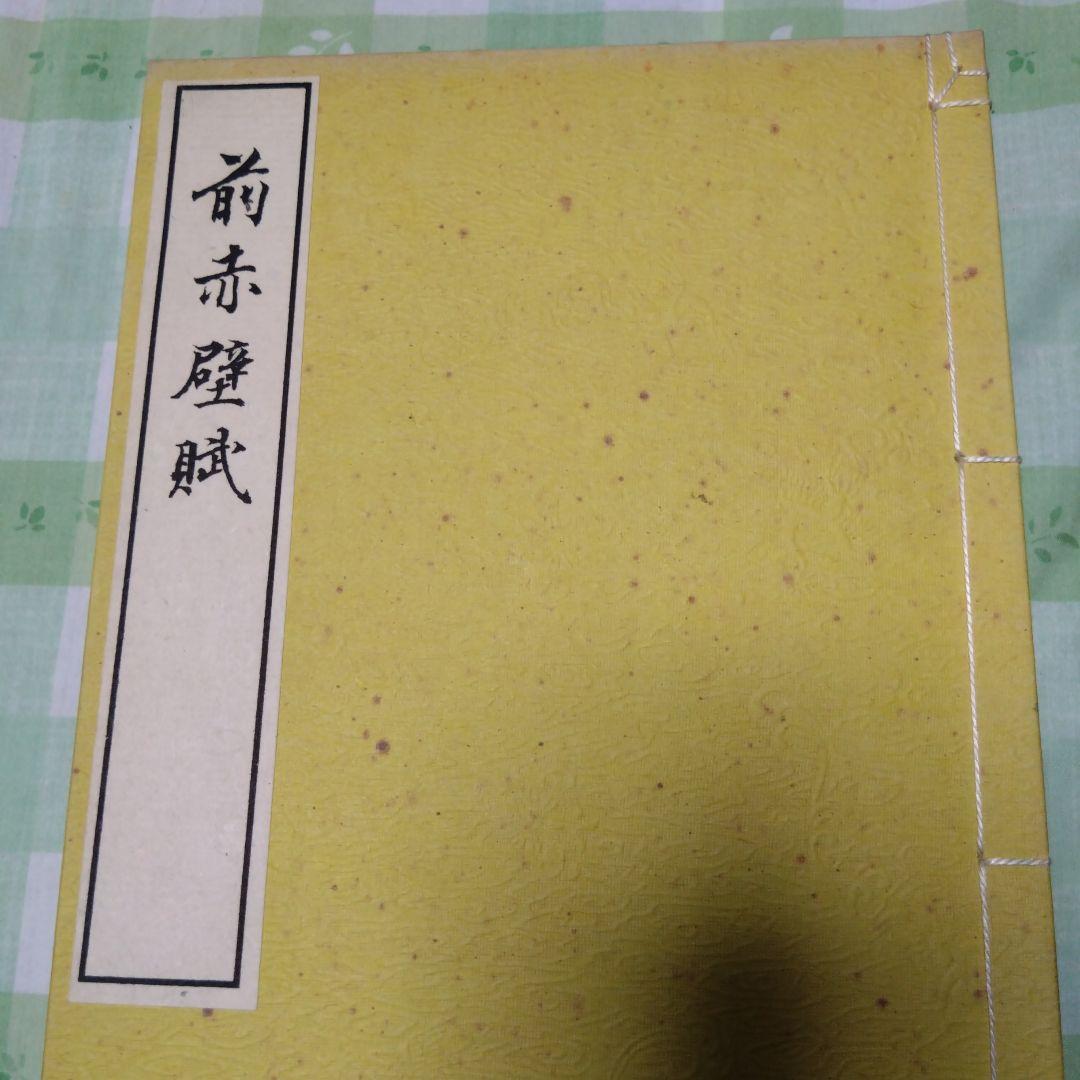 前赤壁賦